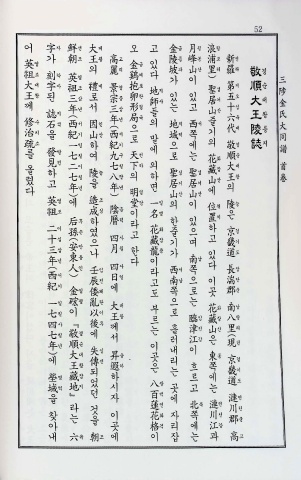 52
三陟金氏大同譜 首卷
敬順大王陵誌
新羅 第五十六代 敬順大王의 陵은 京畿道 長湍郡 南八里(現 京畿道 漣川郡 高
浪浦里) 聖居山줄기의 花藏山에 位置하고 있다 이곳 花藏山은 東쪽에는 漣川江과
月峰山이 있고 西쪽에는 聖居山이 있으며 南쪽으로는 臨津江이 흐르고 北쪽에는
金陵坡가 있는 地域으로 聖居山의 한줄기가 西南쪽으로 흘러내리는 곳에 자리잡
고 있다 地師들의 말에 의하면 一名 花藏龍이라고도 부르는 이곳은 八百蓮花格이
오 金鷄抱卵形局으로 天下의 明堂이라고 한다
高麗 景宗三年(西紀九七八年) 陰曆 四月 四日에 大王께서 昇遐하시자 이곳에
大王의 禮로서 因山하여 陵을 造成하였으나 壬辰倭亂以後에 失傳되었던 것을 朝
鮮朝 英祖三年(西紀 一七二七年)에 后孫(安東人) 金 『敬順大王藏地』라는 六
字가 刻字된 誌石을 發見하고 英祖 二十三年(西紀 一七四七年)에 塋域을 찾아내
어 英祖大王께 修治疏를 올렸다